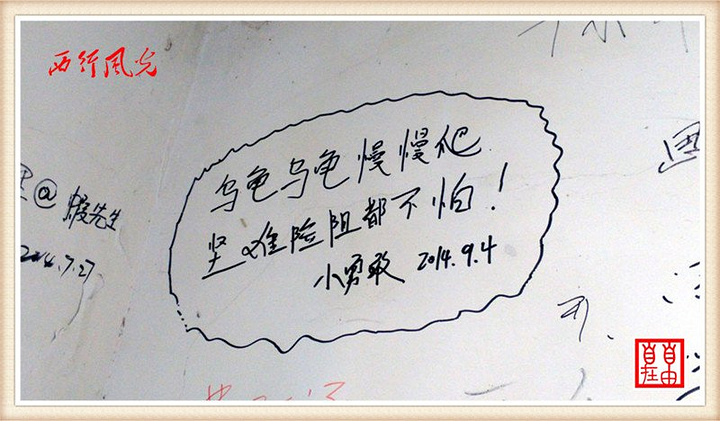 西行風光
乌龟乌龟慢慢爬
坚难险阻都不怕!
小勇敢 2014.9.4
@
先生
2014.7.27
自由
自在